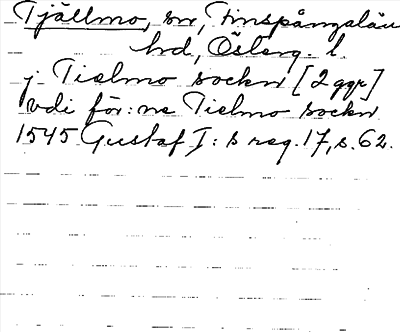 Tjällmo, sn, Finspångaläns
hrd, Österg. l.
j Tielmo sockn [2 ggr]
vdi för:ne Tielmo sockn
1545 Gustaf I:s reg. 17, s. 62.